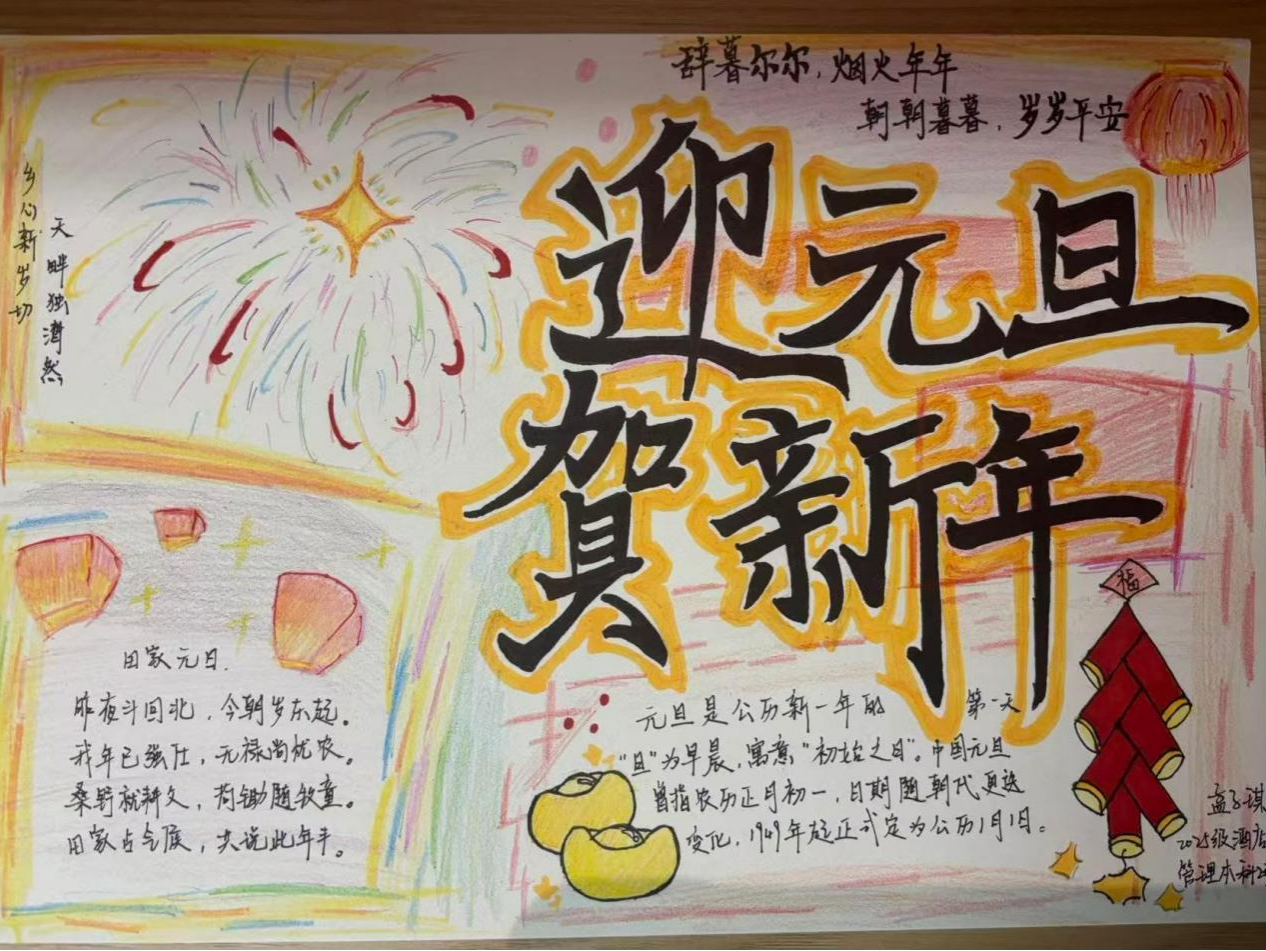 辞暮尔尔，烟火年年
朝朝暮暮，岁岁平安
迎元旦
贺新年
乡心新岁切
天畔独潸然
田家元日.
昨夜斗回北，今朝岁东起。
我年已强仕，无禄尚忧农。
桑野就耕父，荷锄随牧童。
田家占气候，共说此年丰。
元旦是公历新一年的 第一天
“旦”为早晨，寓意“初始之日”。中国元旦
曾指农历正月初一，日期随朝代更迭
变化，1949年起正式定为公历1月1日。
福
孟子琪
2025级酒店
管理本科